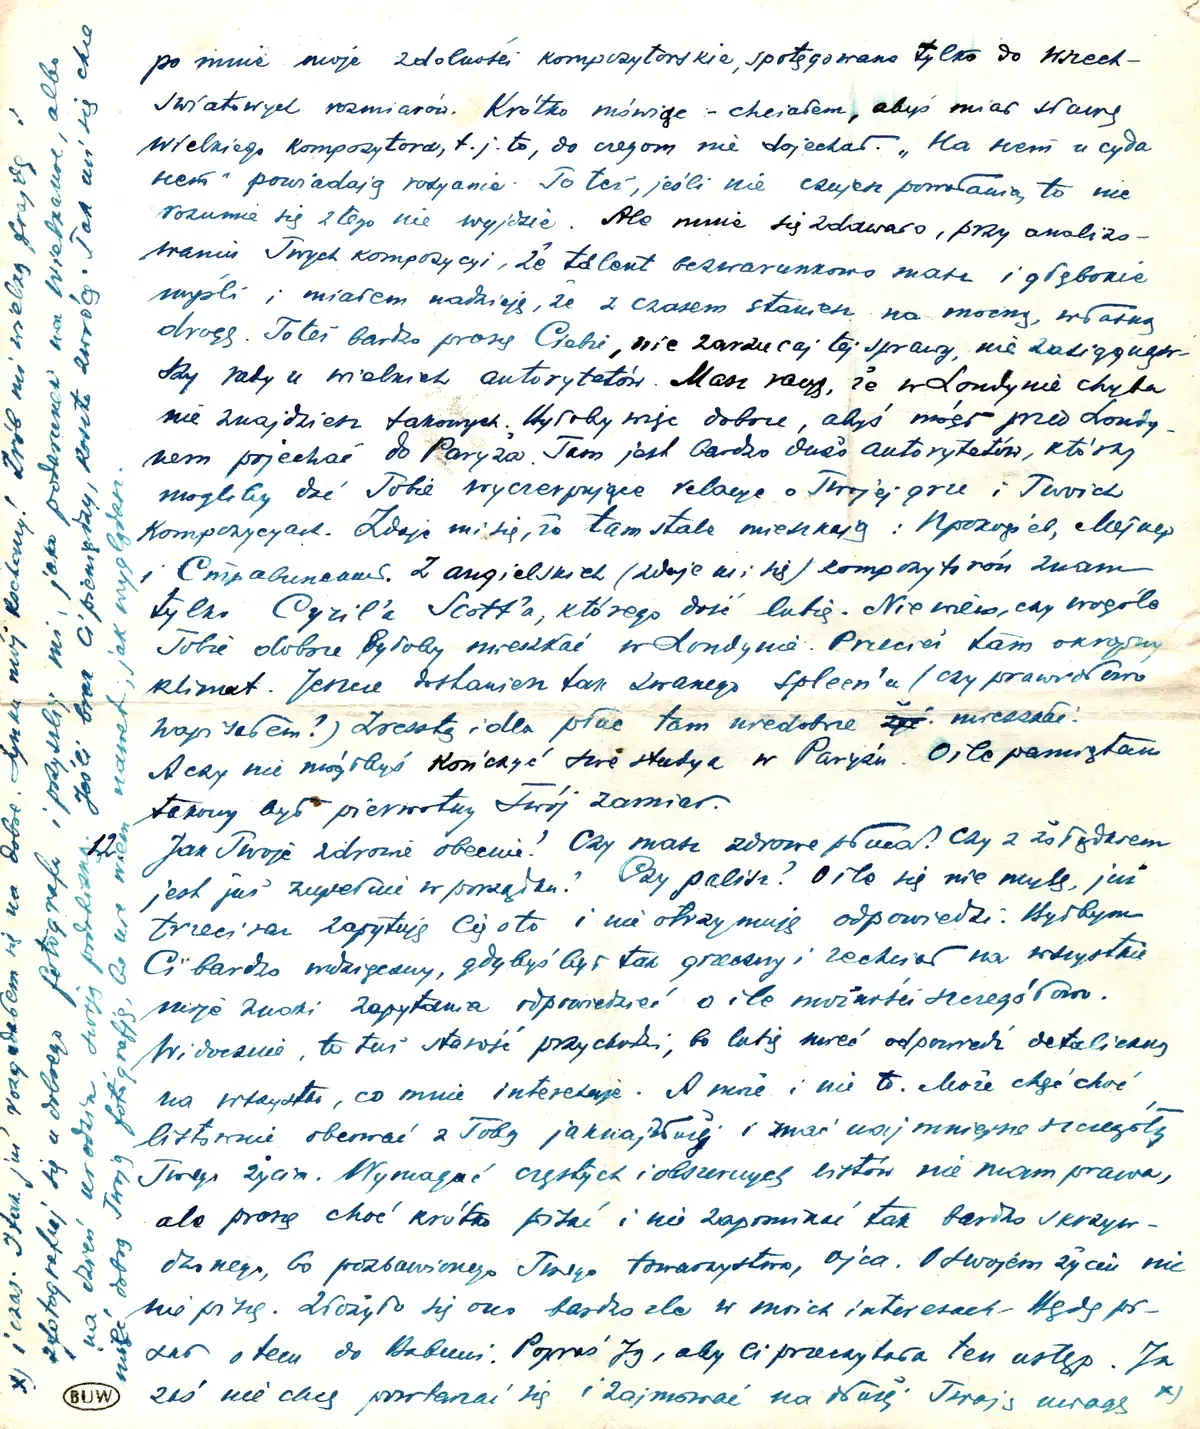 po mnie moje zdolności kompozytorskie, spotęgowane tylko do wszech-
światowych rozmiarów. Krótko mówiąc - chciałem, abyś miał sławę
wielkiego kompozytora, t.j. to, do czegom nie dojechał. „Na niet i suda
niet" powiadają rosyanie. To też, jeśli nie czujesz powołania, to nie
rozumie się z tego nie wyjdzie. Ale mnie się zdawało, przy analizo-
waniu Twych kompozycyi, że talent bezwarunkowo masz i głębokie
myśli i miałem nadzieję, że z czasem staniesz na mocną, własną
drogę. Toteż bardzo proszę Ciebie, nie zarzucaj tej sprawy, nie zasięgnąw-
szy rady u wielkich autorytetów. Masz rację, że w Londynie chyba
nie znajdziesz takowych. Byłoby więc dobrze, abyś mógł przed Londy-
nem pojechać do Paryża. Tam jest bardzo dużo autorytetów, którzy
mogliby dać Tobie wyczerpujące relacye o Twojej grze i Twoich
kompozycyach. Zdaje mi się, że tam stale mieszkają :
i Z angielskich (zdaje mi się) kompozytorów znam
tylko Cyril'a Scott'a, którego dość lubię. Nie wiem, czy wogóle
Tobie dobrze byłoby mieszkać w Londynie. Przecież tam okropny
klimat. Jeszcze dostaniesz tak zwanego spleen'u (czy prawidłowo
napisałem?) Zresztą i dla płuc tam niedobrze mieszkać.
A czy nie mógłbyś kończyć swe studya w Paryżu. O ile pamiętam
takowy był pierwotny Twój zamiar.
Jak Twoje zdrowie obecnie? Czy masz zdrowe płuca? Czy z żołądkiem
jest już zupełnie w porządku? Czy palisz? O ile się nie mylę, już
trzeci raz zapytuję Cię o to i nie otrzymuję odpowiedzi. Byłbym
Ci bardzo wdzięczny, gdybyś był tak grzeczny i zechciał na wszystkie
moje znaki zapytania odpowiedzieć o ile możności szczegółowo.
Widocznie, to już starość przychodzi, bo lubię mieć odpowiedź detaliczną
na wszystko, co mnie interesuje. A może i nie to. Może chęć choć
listownie obcować z Tobą jaknajdłużej i znać najmniejsze szczegóły
Twego życia. Wymagać częstych i obszernych listów nie mam prawa,
ale proszę choć krótko pisać i nie zapominać tak bardzo skrzyw-
dzonego, bo pozbawionego Twego towarzystwa, ojca. O swojem życiu nic
nie piszę. Złożyło się ono bardzo źle w moich interesach. Będę pi-
sał o tem do Babuni. Poproś Ją, aby Ci przeczytała ten ustęp. Ja
zaś nie chcę powtarzać się i zajmować na dłużej Twoją uwagę x)
x) i czas. I tak już rozgadałem się na dobre. Synku mój kochany! Zrób mi wielką frajdę!
zfotografuj się u dobrego fotografa i przyślij mi, jako podarunek na
na dzień urodzin swoją podobiznę. Jeśli brak Ci pieniędzy, koszta zwrócę. Tak mi się chce
mieć dobrą Twoją fotografję, bo nie wiem nawet, jak wyglądasz.
12
BUW